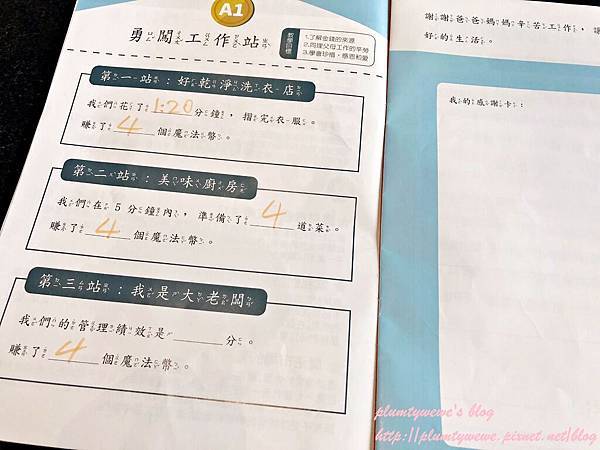 A1
勇闖工作站
教學目標
1.了解金錢的來源
2.同理父母工作的辛勞
3.學會珍惜、感恩和愛
第一站：好乾淨洗衣店
我們花了1:20分鐘，摺完衣服。
賺了4個魔法幣。
第二站：美味廚房
我們在5分鐘內，準備了4道菜。
賺了4個魔法幣。
第三站：我是大老闆
我們的管理績效是______分。
賺了4個魔法幣。
謝謝爸爸媽媽辛苦工作，
好的生活。
我的感謝卡：
plumtywewe's blog
http://plumtywewe.pixnet.net/blog